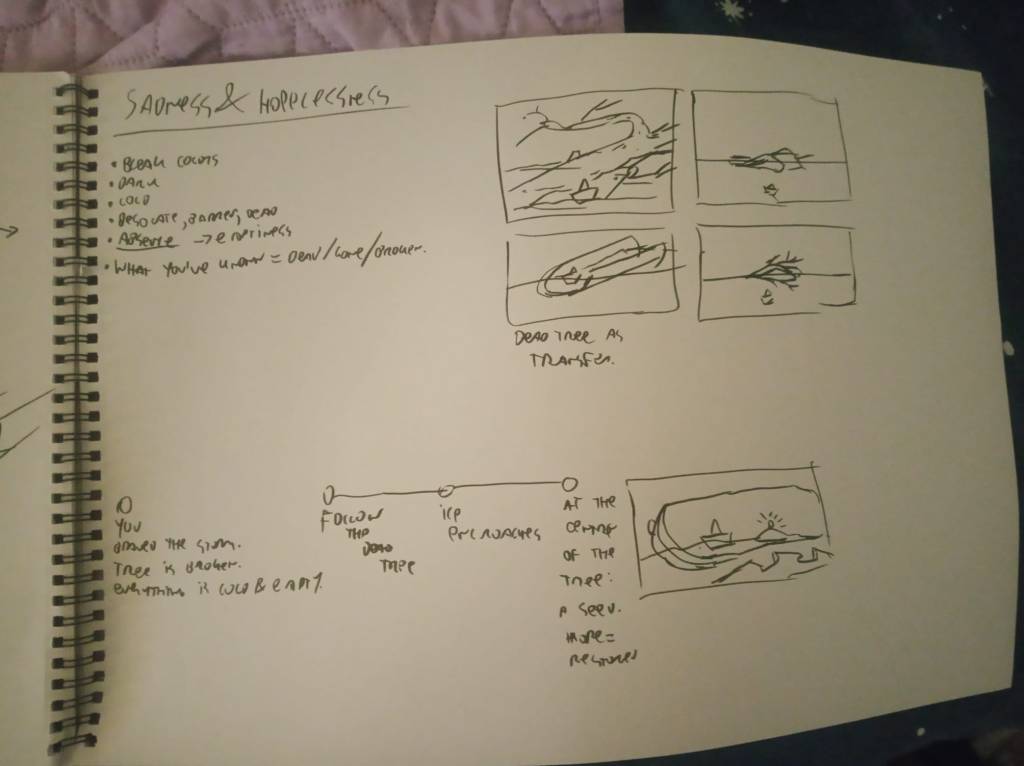 SADNESS & HOPELESSNESS
• BLEAK COLORS
• DARK
• COLD
• DESOLATE, BARREN, DEAD
• ABSENCE → EMPTINESS
• WHAT YOU'VE KNOWN = DEAD/GONE/BROKEN.
DEAD TREE AS
TRANSFER.
YOU
BRAVED THE STORM.
TREE IS BROKEN.
EVERYTHING IS COLD & EMPTY.
FOLLOW
THE
DEAD
TREE
ICE
ENCROACHES
AT THE
CENTRE
OF THE
TREE:
A SEED.
HOPE =
RESTORED